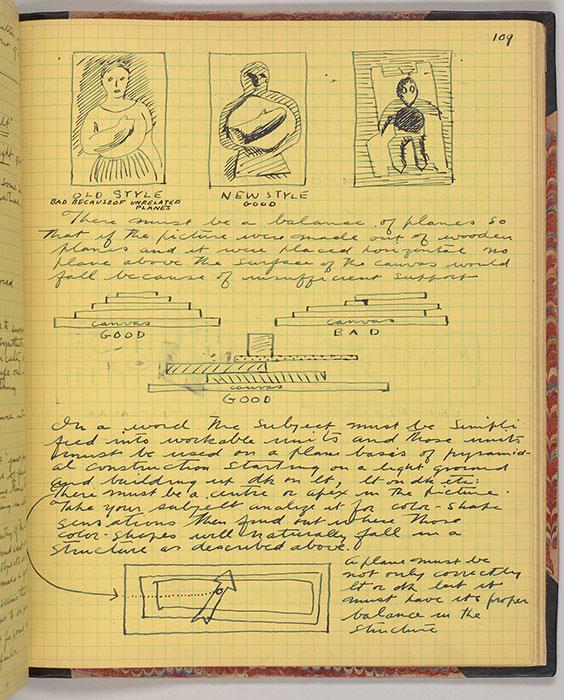 109
OLD STYLE
BAD BECAUSE OF UNRELATED
PLANES
NEW STYLE
GOOD
There must be a balance of planes so
that if the picture were made out of wooden
planes and it were placed horizontal no
plane above the surface of the canvas would
fall because of insufficient support
canvas
GOOD
canvas
BAD
canvas
GOOD
In a word The Subject must be Simpli
fied into workable units and those units
must be used on a plane basis of pyramid-
al construction starting on a light ground
and building up dk on lt, lt on dk etc:
There must be a centre or apex in the picture.
Take your subject analize it for color-shape
sensations then find out where those
color-shapes will naturally fall in a
structure as described above.
A plane must be
not only correctly
lt or dk but it
must have its proper
balance in the
structure